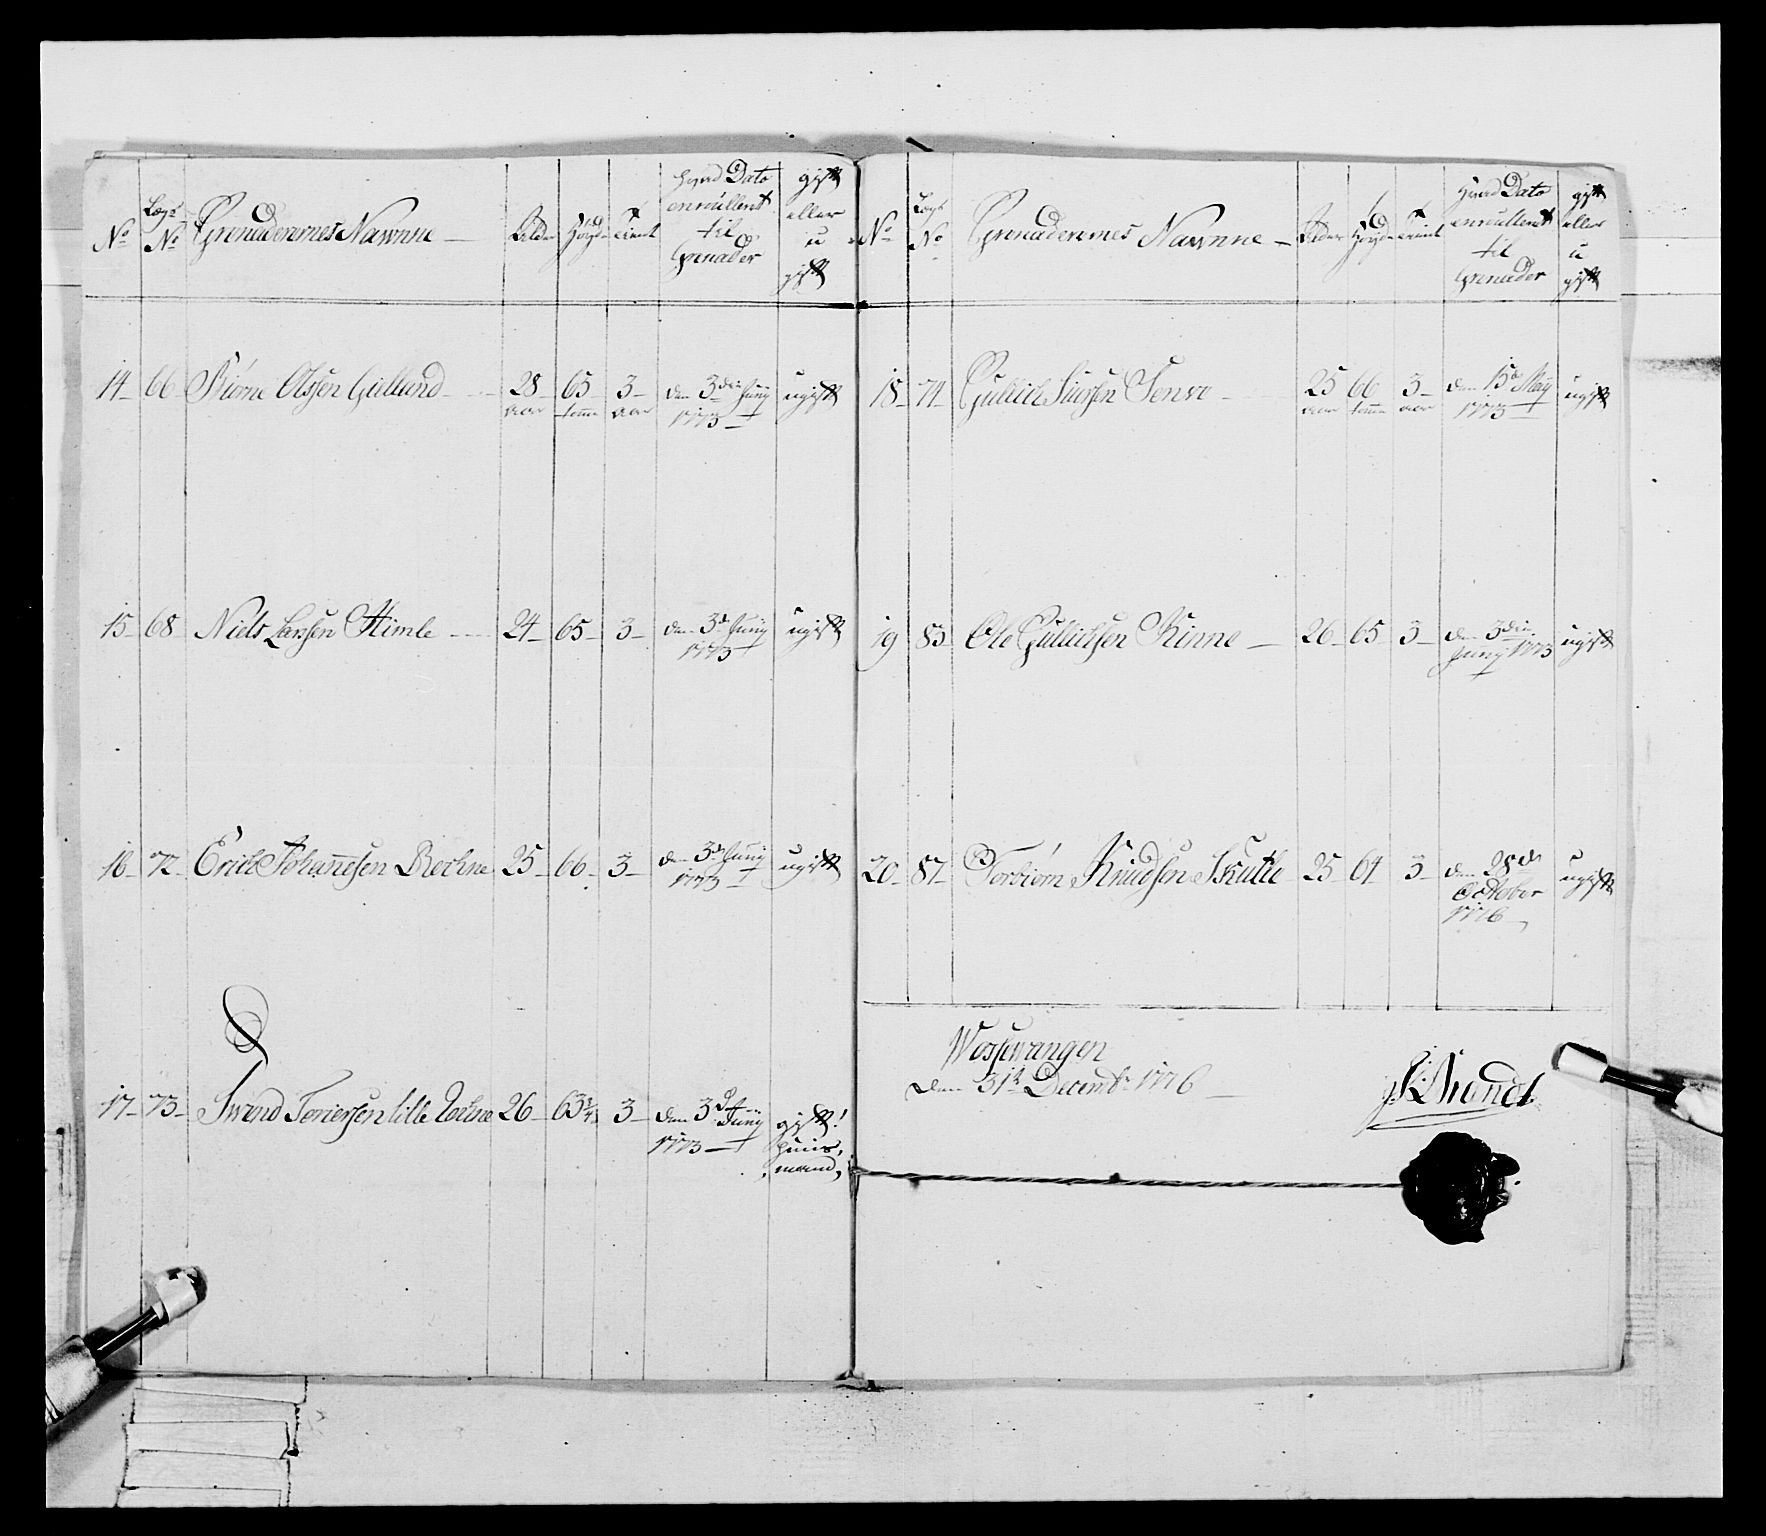 No Lægs No Grenaderernes Nawnne — Alder Høyde tient hvad Dato enrullert til Grenader gift eller u gift
14 66 Biørne Olssen Gielland 28 aar 65 tomme 3 aar den 3die Junij 1773 ugift
15 68 Niels Larssen Himle 24 65 3 den 3d Junij 1773 ugift
16 72 Erich Johannesen 25 66 3 den 3d Junij 1773 ugift
17 73 Swend lille 26 63 3/4 3 den 3d Junij 1773 gift huus mand
No Lægs No Grenaderernes Nawnne — Alder Høyde tient hvad Dato enrullert til Grenader gift eller u gift
18 74 Gullich Siursen 25 aar 66 tomme 3 aar den 15d May 1773 ugift
19 83 Ole Gullichsen Rinne — 26 65 3 den 3die Junij 1773 ugift
20 87 Torbiørn Knudsen Skutle 25 64 3 den 28de October 1776 ugift
Wossewangen
den 31t Decembr 1776